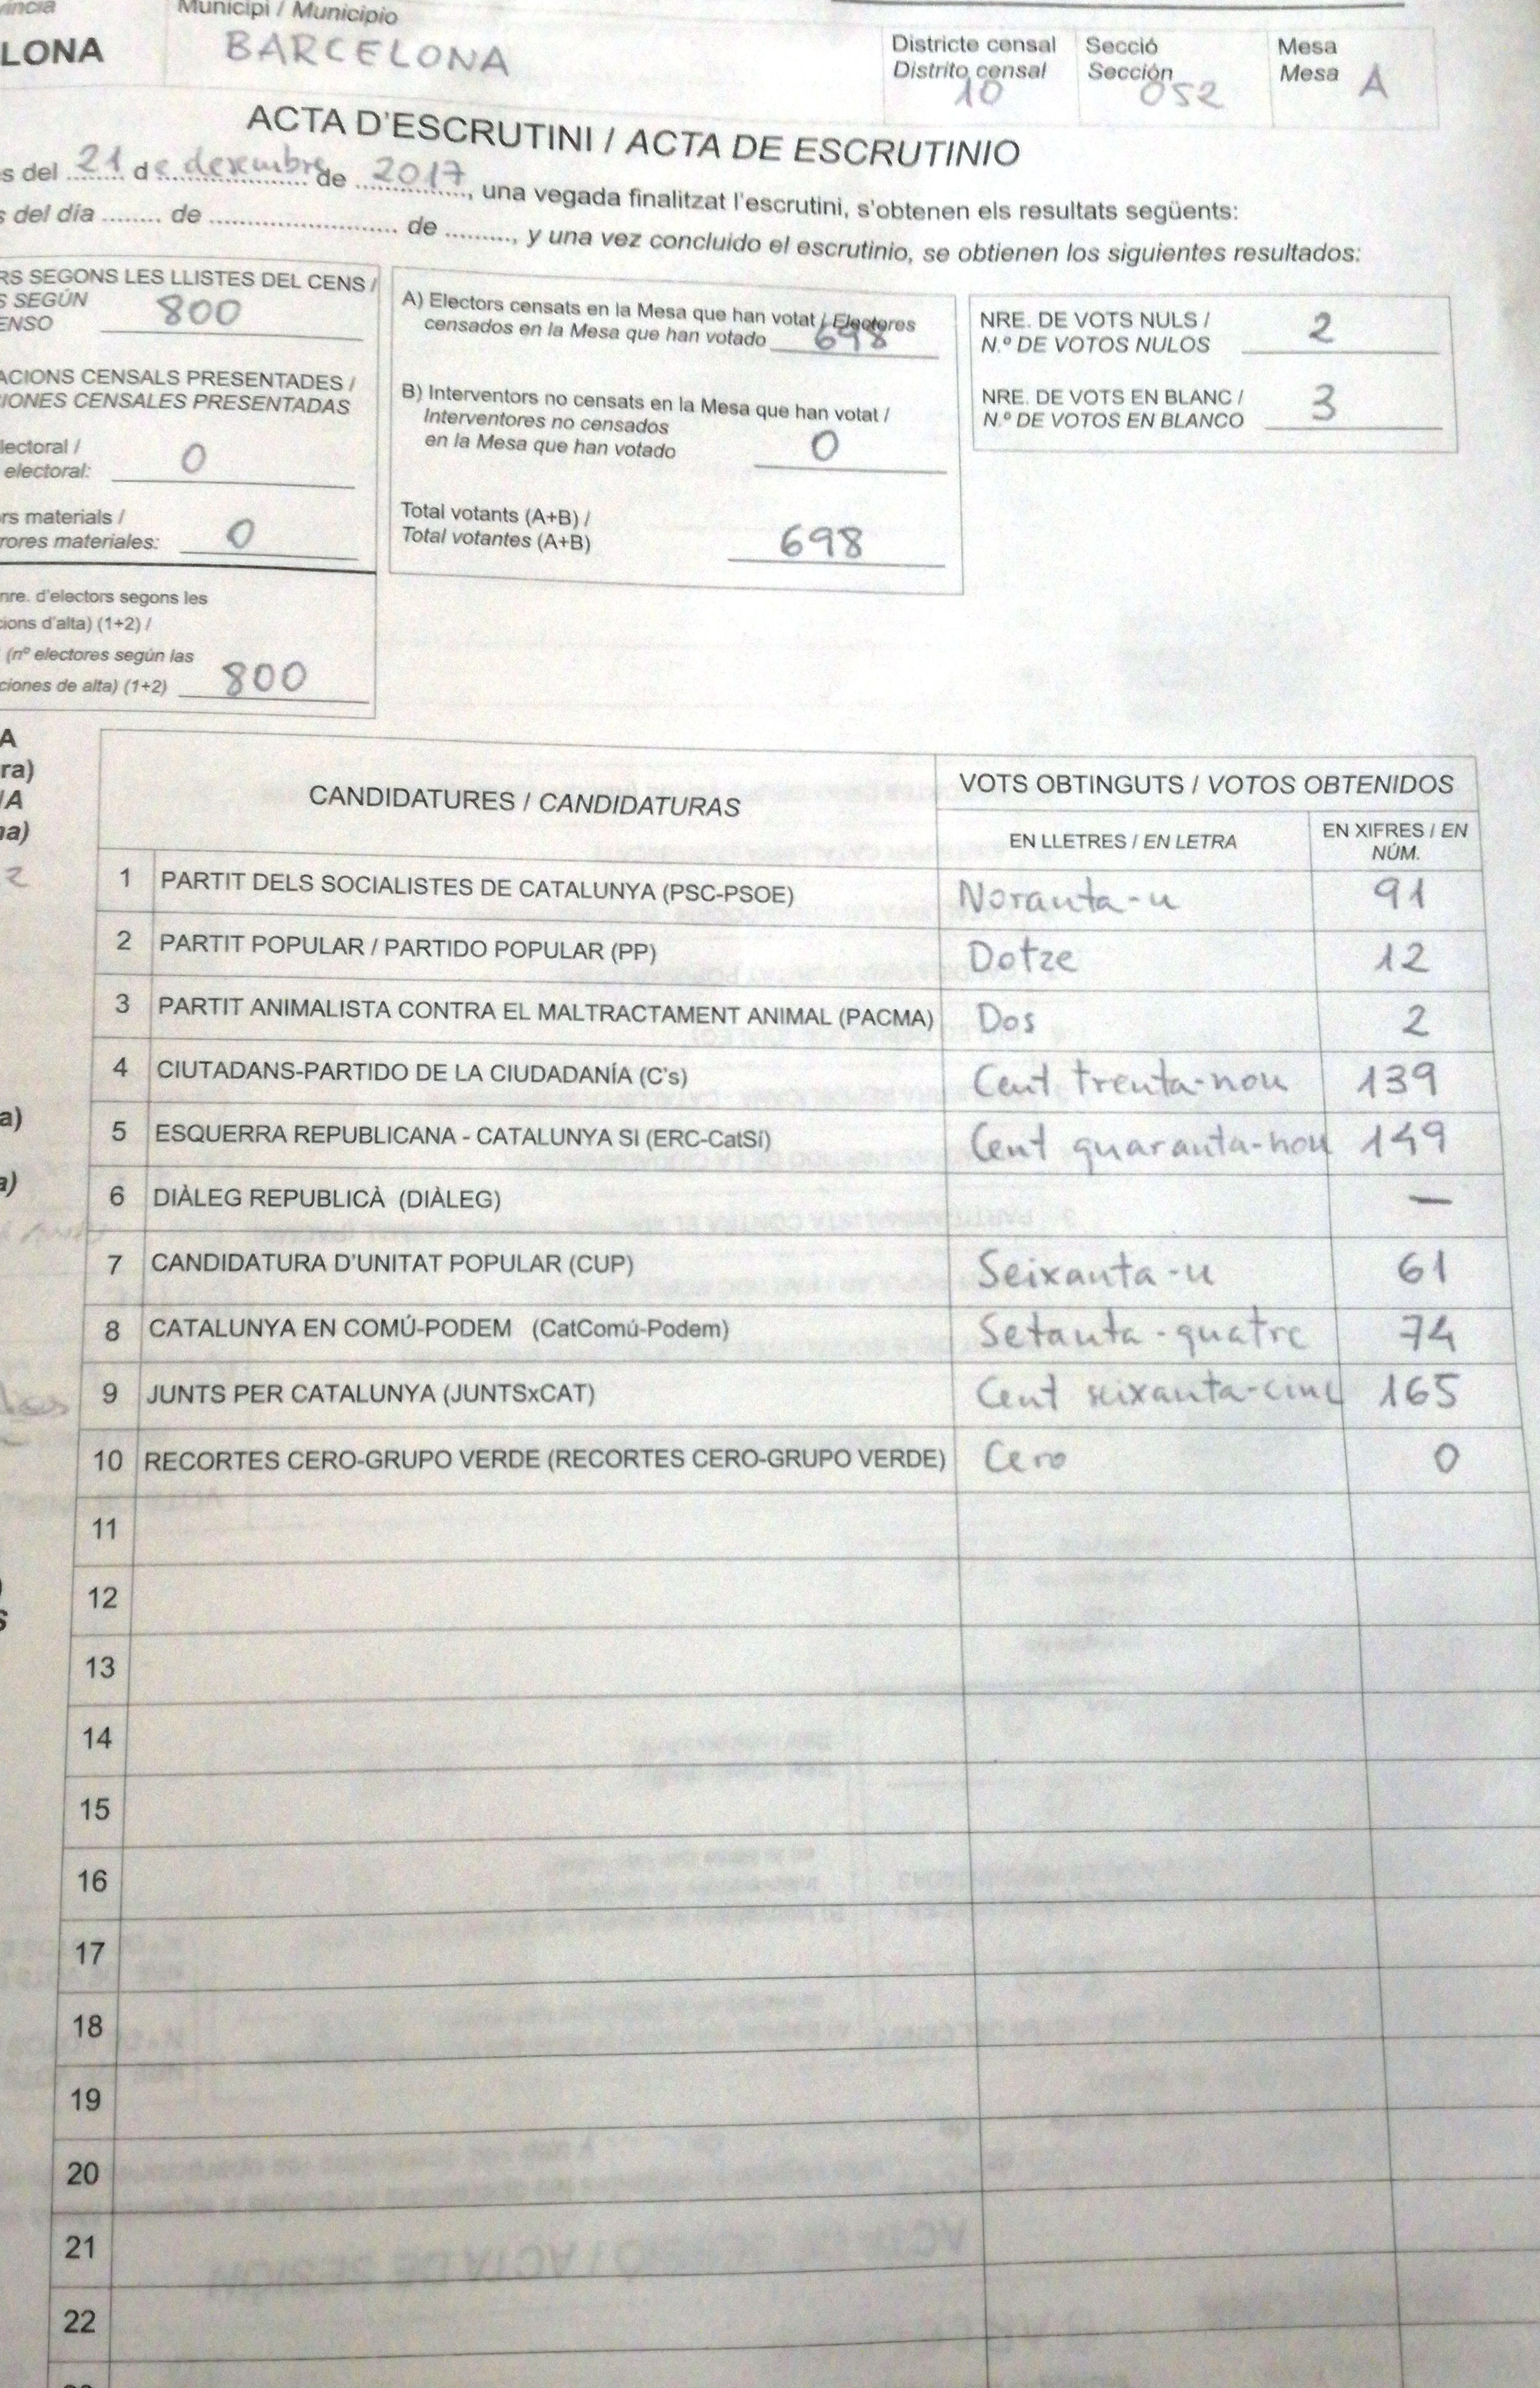 víncia
Municipi / Municipio
LONA
BARCELONA
Districte censal
Distrito censal
10
Secció
Sección
052
Mesa
Mesa A
ACTA D'ESCRUTINI / ACTA DE ESCRUTINIO
s del 21 de desembre de 2017, una vegada finalitzat l'escrutini, s'obtenen els resultats següents:
s del día ........ de ........................... de ........., y una vez concluido el escrutinio, se obtienen los siguientes resultados:
RS SEGONS LES LLISTES DEL CENS /
S SEGÚN
ENSO 800
ACIONS CENSALS PRESENTADES /
IONES CENSALES PRESENTADAS
lectoral /
electoral: 0
rs materials /
rores materiales: 0
nre. d'electors segons les
cions d'alta) (1+2) /
(nº electores según las
ciones de alta) (1+2) 800
A) Electors censats en la Mesa que han votat / Electores
censados en la Mesa que han votado 698
B) Interventors no censats en la Mesa que han votat /
Interventores no censados
en la Mesa que han votado 0
Total votants (A+B) /
Total votantes (A+B) 698
NRE. DE VOTS NULS /
N.º DE VOTOS NULOS 2
NRE. DE VOTS EN BLANC /
N.º DE VOTOS EN BLANCO 3
A
ra)
/A
na)
2
a)
a)
CANDIDATURES / CANDIDATURAS
VOTS OBTINGUTS / VOTOS OBTENIDOS
EN LLETRES / EN LETRA
EN XIFRES / EN
NÚM.
1 PARTIT DELS SOCIALISTES DE CATALUNYA (PSC-PSOE) Noranta-u 91
2 PARTIT POPULAR / PARTIDO POPULAR (PP) Dotze 12
3 PARTIT ANIMALISTA CONTRA EL MALTRACTAMENT ANIMAL (PACMA) Dos 2
4 CIUTADANS-PARTIDO DE LA CIUDADANÍA (C's) Cent trenta-nou 139
5 ESQUERRA REPUBLICANA - CATALUNYA SI (ERC-CatSí) Cent quaranta-nou 149
6 DIÀLEG REPUBLICÀ (DIÀLEG) —
7 CANDIDATURA D'UNITAT POPULAR (CUP) Seixanta-u 61
8 CATALUNYA EN COMÚ-PODEM (CatComú-Podem) Setanta-quatre 74
9 JUNTS PER CATALUNYA (JUNTSxCAT) Cent seixanta-cinc 165
10 RECORTES CERO-GRUPO VERDE (RECORTES CERO-GRUPO VERDE) Cero 0
11
12
13
14
15
16
17
18
19
20
21
22